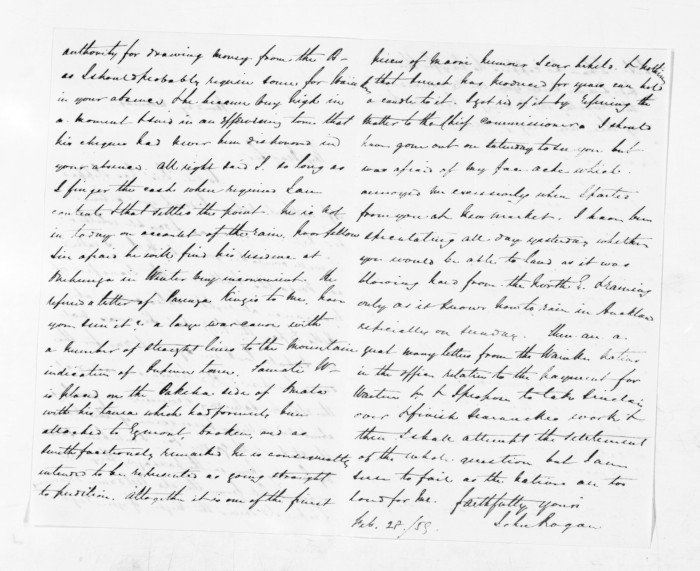 authority for drawing money from the B-
as I should probably require some for Wairoa
in your absence & he became very high in
a moment & said in an offended tone that
his cheques had never been dishonored in
your absence. All right said I. so long as
I finger the cash when required I am
content & that settles the point. he is not
in today on account of the rain, poor fellow
I'm afraid he will find his residence at
Onehunga in Winter very inconvenient. He
referred a letter of Kingis to me, have
you seen it? a large war canoe with
a number of straight lines to the mountain
indication of love. W-
is placed on the Pakeha side of
with his which had formerly been
attached to Egmont broken, and as
Smith facetiously remarked he is consequently
intended to be represented as going straight
to perdition. Altogether it is one of the finest
pieces of Maori humour I ever beheld & nothing
that has produced for years can hold
a candle to it. I got rid of it by referring the
matter to the Chief Commissioner. I should
have gone out on Saturday to see you but
was afraid of my face ache which
annoyed me excessively when I parted
from you at New market. I have been
speculating all day yesterday whether
you would be able to land as it was
blowing hard from the North E. & raining
only as it knows how to rain in Auckland
especially on Sunday. There are a
great many letters from the natives
in the office relative to the payment for
& I propose to take Sinclair
over & finish work &
then I shall attempt the settlement
of the whole question but I am
sure to fail as the natives are too
for me. Faithfully yours
Feb. 28./59. John Rogan